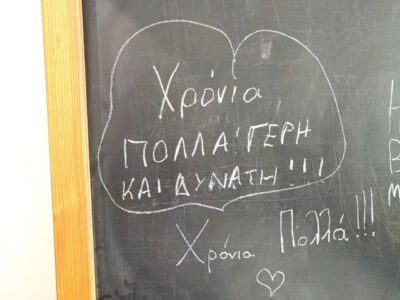 Χρόνια
ΠΟΛΛΑ ΓΕΡΗ
ΚΑΙ ΔΥΝΑΤΗ!!!
Χρόνια Πολλά!!!